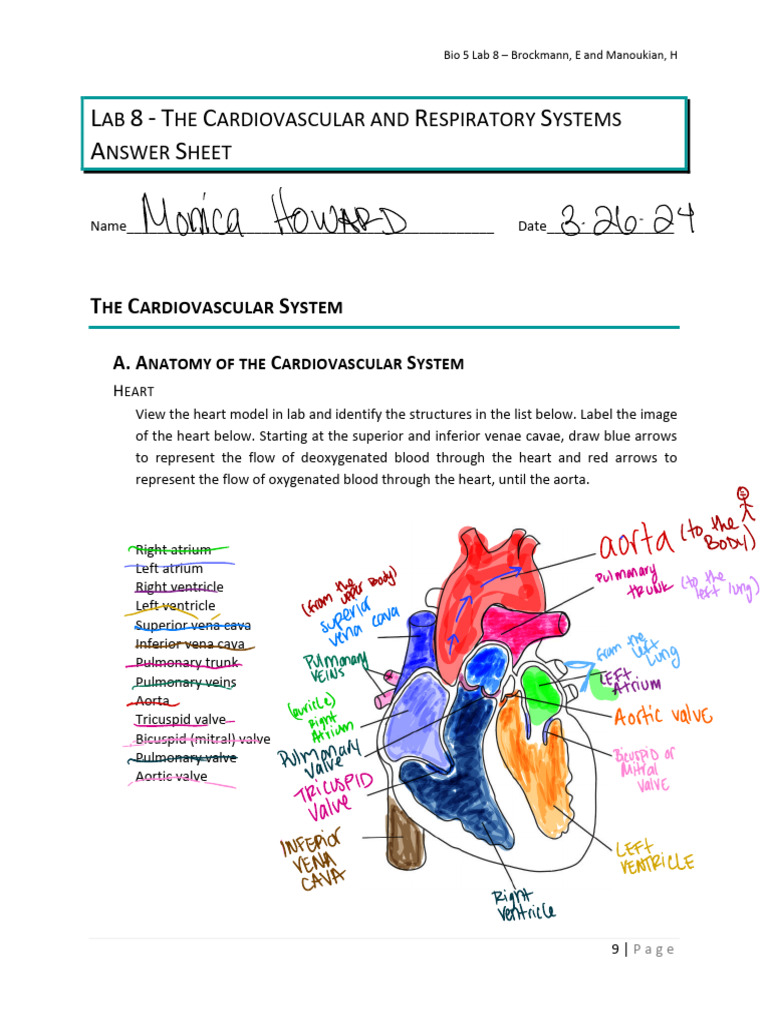 Bio 5 Lab 8 – Brockmann, E and Manoukian, H
LAB 8 - THE CARDIOVASCULAR AND RESPIRATORY SYSTEMS
ANSWER SHEET
Name Monica Howard Date 3-26-24
THE CARDIOVASCULAR SYSTEM
A. ANATOMY OF THE CARDIOVASCULAR SYSTEM
HEART
View the heart model in lab and identify the structures in the list below. Label the image
of the heart below. Starting at the superior and inferior venae cavae, draw blue arrows
to represent the flow of deoxygenated blood through the heart and red arrows to
represent the flow of oxygenated blood through the heart, until the aorta.
Right atrium
Left atrium
Right ventricle
Left ventricle
Superior vena cava
Inferior vena cava
Pulmonary trunk
Pulmonary veins
Aorta
Tricuspid valve
Bicuspid (mitral) valve
Pulmonary valve
Aortic valve
(from the
upper body)
superior
vena cava
Pulmonary
veins
(auricle)
Right
Atrium
Pulmonary
valve
TRICUSPID
valve
INFERIOR
VENA
CAVA
Right
ventricle
aorta (to the
BODY)
Pulmonary
trunk (to the
left lung)
from the
left
lung
LEFT
Atrium
Aortic valve
Bicuspid or
Mitral
valve
LEFT
VENTRICLE
9 | Page